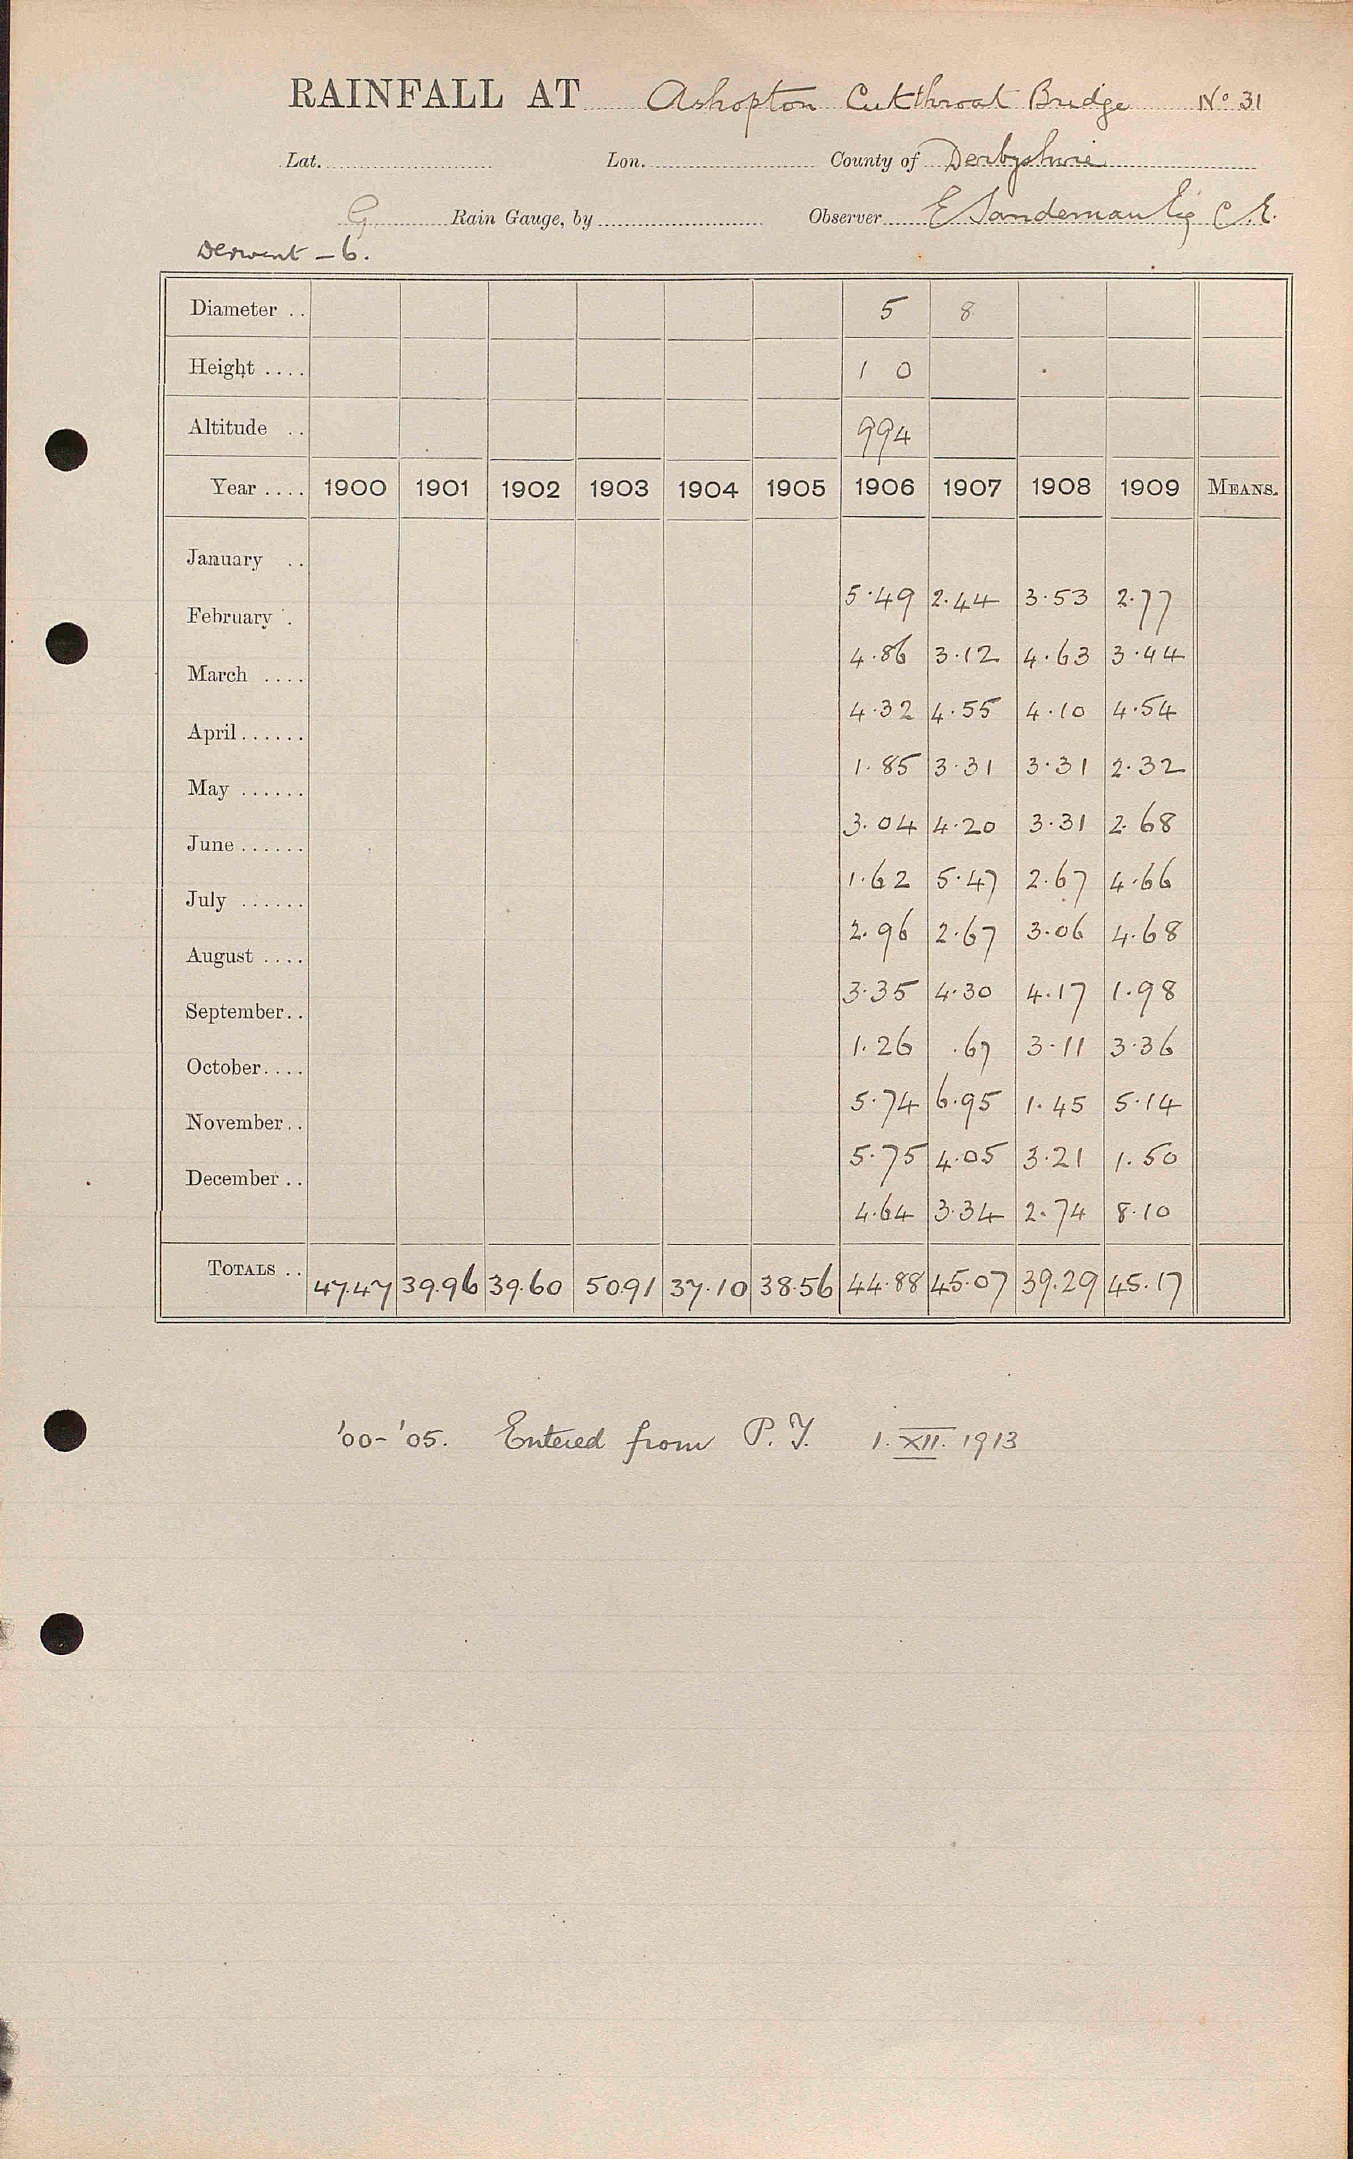 RAINFALL AT Ashopton Cutthroat Bridge No 31
Lat. Lon. County of Derbyshire
G Rain Gauge, by Observer E Sandeman Esq C.E.
Derwent – 6.
Diameter .. 5 8
Height .... 1 0
Altitude .. 994
Year .... 1900 1901 1902 1903 1904 1905 1906 1907 1908 1909 MEANS.
January .. 5.49 2.44 3.53 2.77
February . 4.86 3.12 4.63 3.44
March .... 4.32 4.55 4.10 4.54
April...... 1.85 3.31 3.31 2.32
May ...... 3.04 4.20 3.31 2.68
June...... 1.62 5.47 2.67 4.66
July ...... 2.96 2.67 3.06 4.68
August .... 3.35 4.30 4.17 1.98
September.. 1.26 .67 3.11 3.36
October.... 5.74 6.95 1.45 5.14
November.. 5.75 4.05 3.21 1.50
December .. 4.64 3.34 2.74 8.10
TOTALS .. 47.47 39.96 39.60 50.91 37.10 38.56 44.88 45.07 39.29 45.17
'00-'05. Entered from P.Y. 1.XII.1913